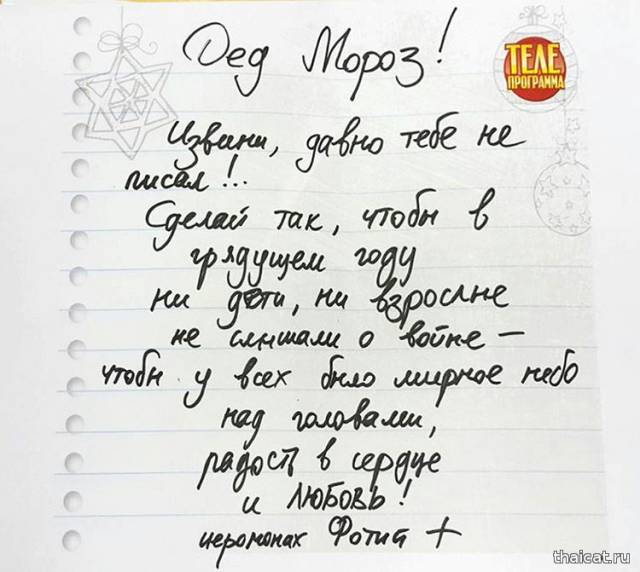 Дед Мороз!
ТЕЛЕ
ПРОГРАММА
Извини, давно тебе не
писал!..
Сделай так, чтобы в
грядущем году
ни дети, ни взрослые
не слышали о войне –
чтобы у всех было мирное небо
над головами,
радость в сердце
и ЛЮБОВЬ!
иеромонах Фотий +
thaicat.ru